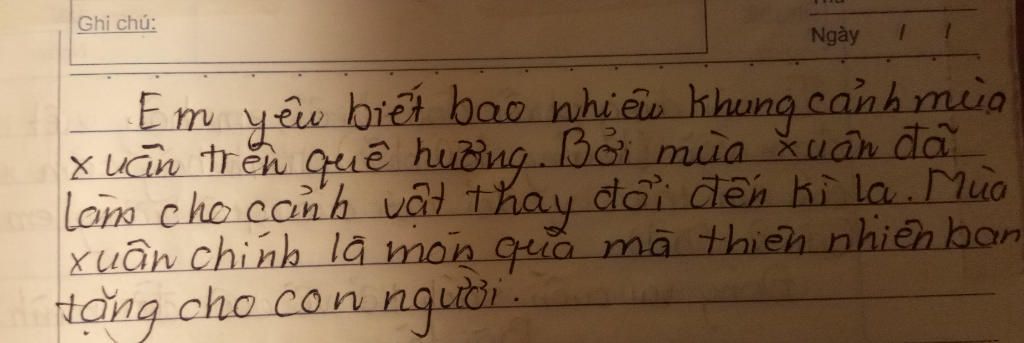 Ghi chú:
Ngày / /
Em yêu biết bao nhiêu khung cảnh mùa
xuân trên quê hương. Bởi mùa xuân đã
làm cho cảnh vật thay đổi đến kì lạ. Mùa
xuân chính là món quà mà thiên nhiên ban
tặng cho con người.